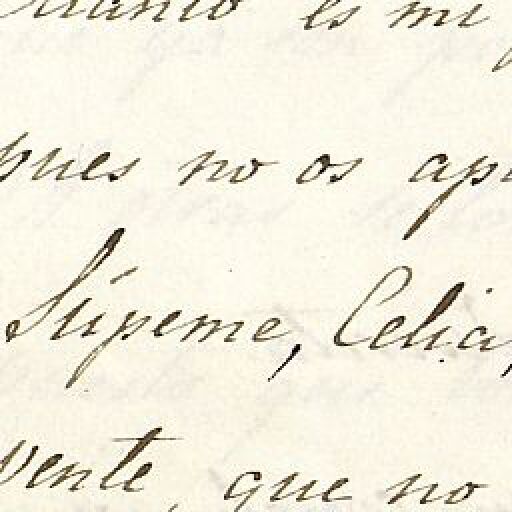 es mi
pues no os
Súpeme, Celia,
vente, que no